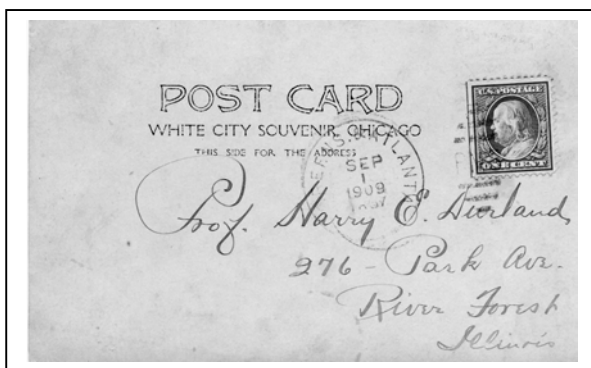 POST CARD
WHITE CITY SOUVENIR, CHICAGO
THIS SIDE FOR THE ADDRESS
U.S. POSTAGE
ONE CENT
SEP
1
1909
Prof. Harry E. Durland,
276 - Park Ave.
River Forest
Illinois